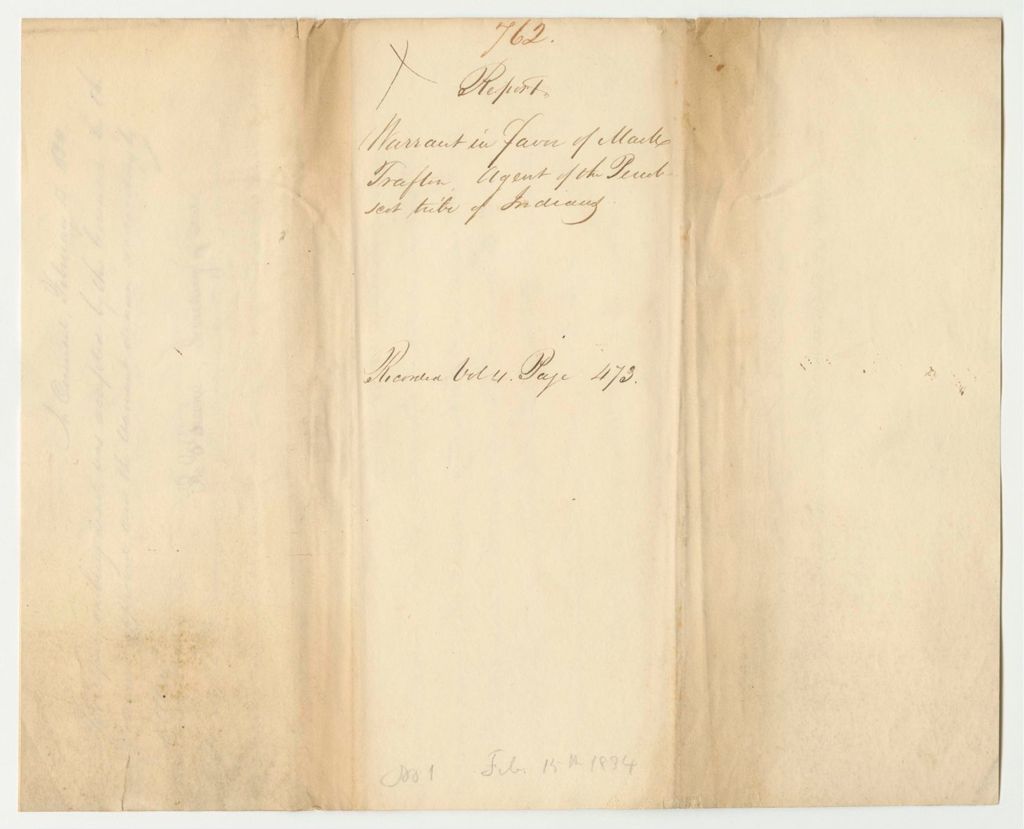 762.
Report.
Warrant in favor of Mark
Trafton, Agent of the Penob-
scot tribe of Indians.
Recorded Vol 4. Page 473.
Feb. 15th 1834